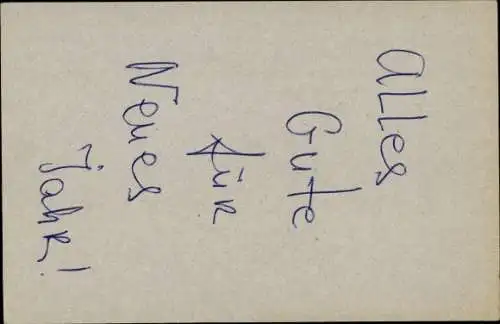 Alles
Gute
für
Neues
Jahr!